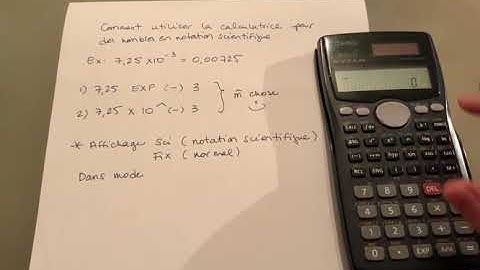 Comment utiliser la calculatrice pour
des nombres en notation scientifique
Ex: 7,25 x10⁻³ = 0,00725
1) 7,25 EXP (-) 3
2) 7,25 x 10^(-) 3
} m̂ chose
* Affichage Sci (notation scientifique)
Fix (normal)
Dans mode
0
7 8 9 DEL
4 5 6
1 2 3
0 . EXP